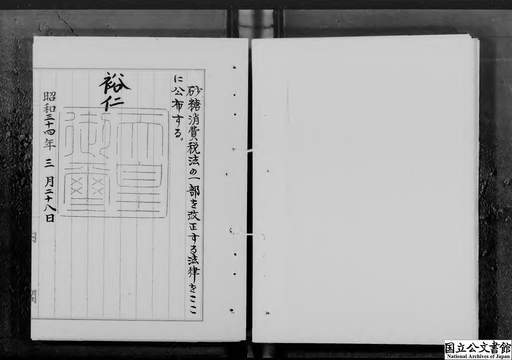 砂糖消費税法の一部を改正する法律をここ
に公布する。
裕仁
天皇
御璽
昭和三十四年三月二十八日
国立公文書館
National Archives of Japan